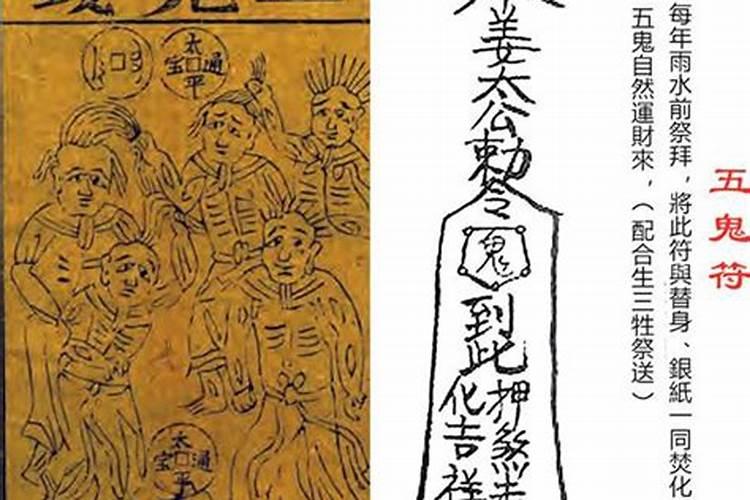 五鬼符
每年雨水前祭拜，將此符與替身、銀紙一同焚化
五鬼自然運財來，（配合生三牲祭送）
姜太公勅令
鬼
到此
押煞
化吉祥
太平通宝
太平通宝